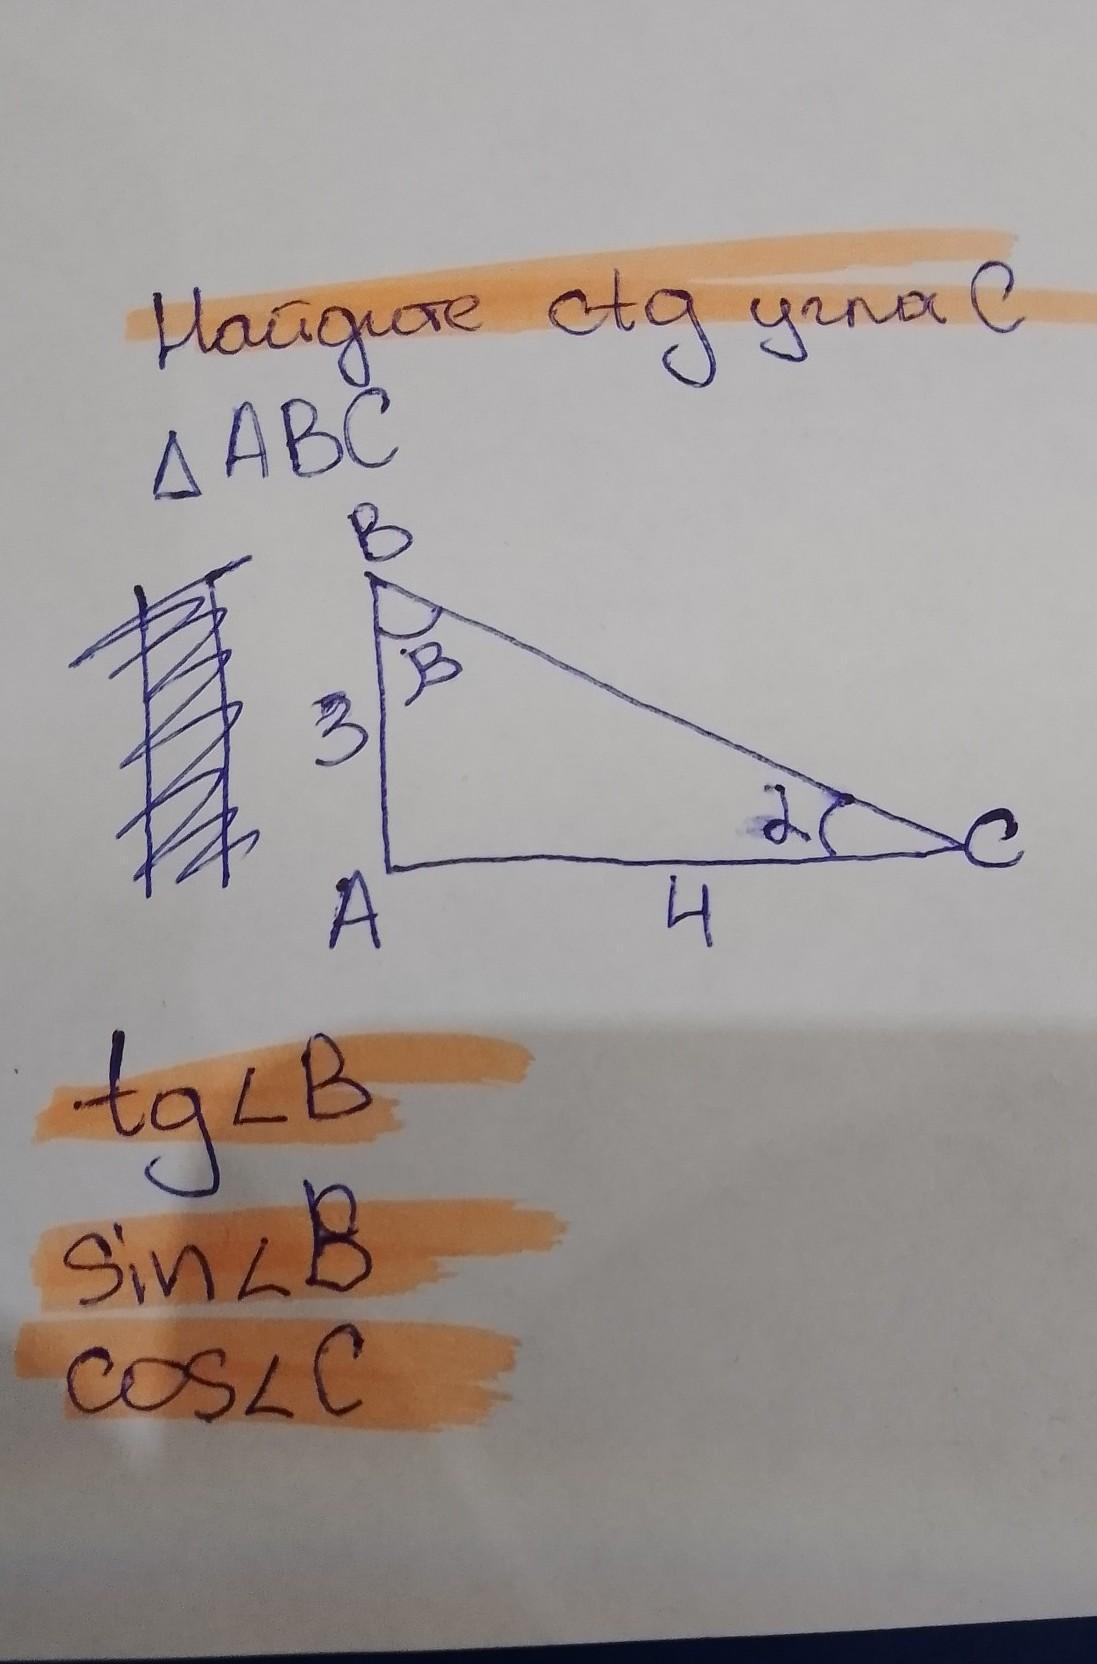 Найдите ctg угла C
△ABC
B
β
3
α
C
A
4
tg∠B
sin∠B
cos∠C